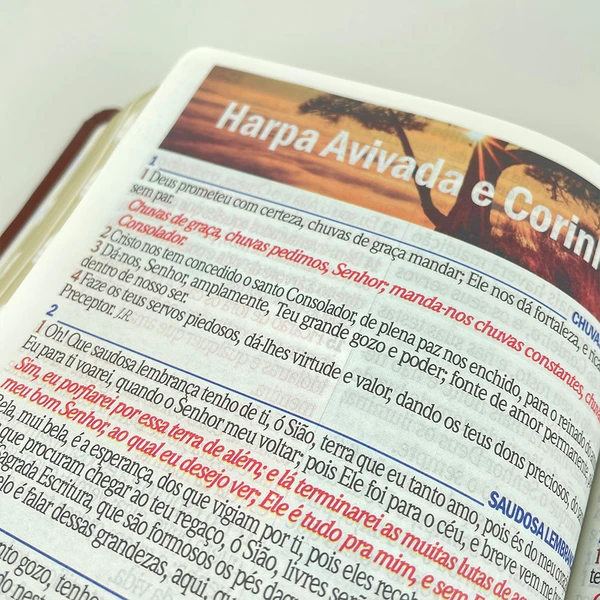 Harpa Avivada e Corin
1
CHUVA
1 Deus prometeu com certeza, chuvas de graça mandar; Ele nos dá fortaleza, e rica
sem par.
Chuvas de graça, chuvas pedimos, Senhor; manda-nos chuvas constantes, chuv
Consolador.
2 Cristo nos tem concedido o santo Consolador, de plena paz nos enchido, para o reinado do
3 Dá-nos, Senhor, amplamente, Teu grande gozo e poder; fonte de amor permanente
dentro de nosso ser.
4 Faze os teus servos piedosos, dá-lhes virtude e valor, dando os teus dons preciosos, do
Preceptor. J.R.
2
SAUDOSA LEMBRAN
1 Oh! Que saudosa lembrança tenho de ti, ó Sião, terra que eu tanto amo, pois és do meu cora
Eu para ti voarei, quando o Senhor meu voltar; pois Ele foi para o céu, e breve vem me b
Sim, eu porfiarei por essa terra de além; e lá terminarei as muitas lutas de aq
meu bom Senhor, ao qual eu desejo ver; Ele é tudo pra mim, e sem E
ela, mui bela, é a esperança, dos que vigiam por ti, pois eles receb
que procuram chegar ao teu regaço, ó Sião, livres serão
agrada Escritura, que são formosos os pés daque
elo é falar dessas grandezas, aqui, que
nto gozo, tenho
do nest